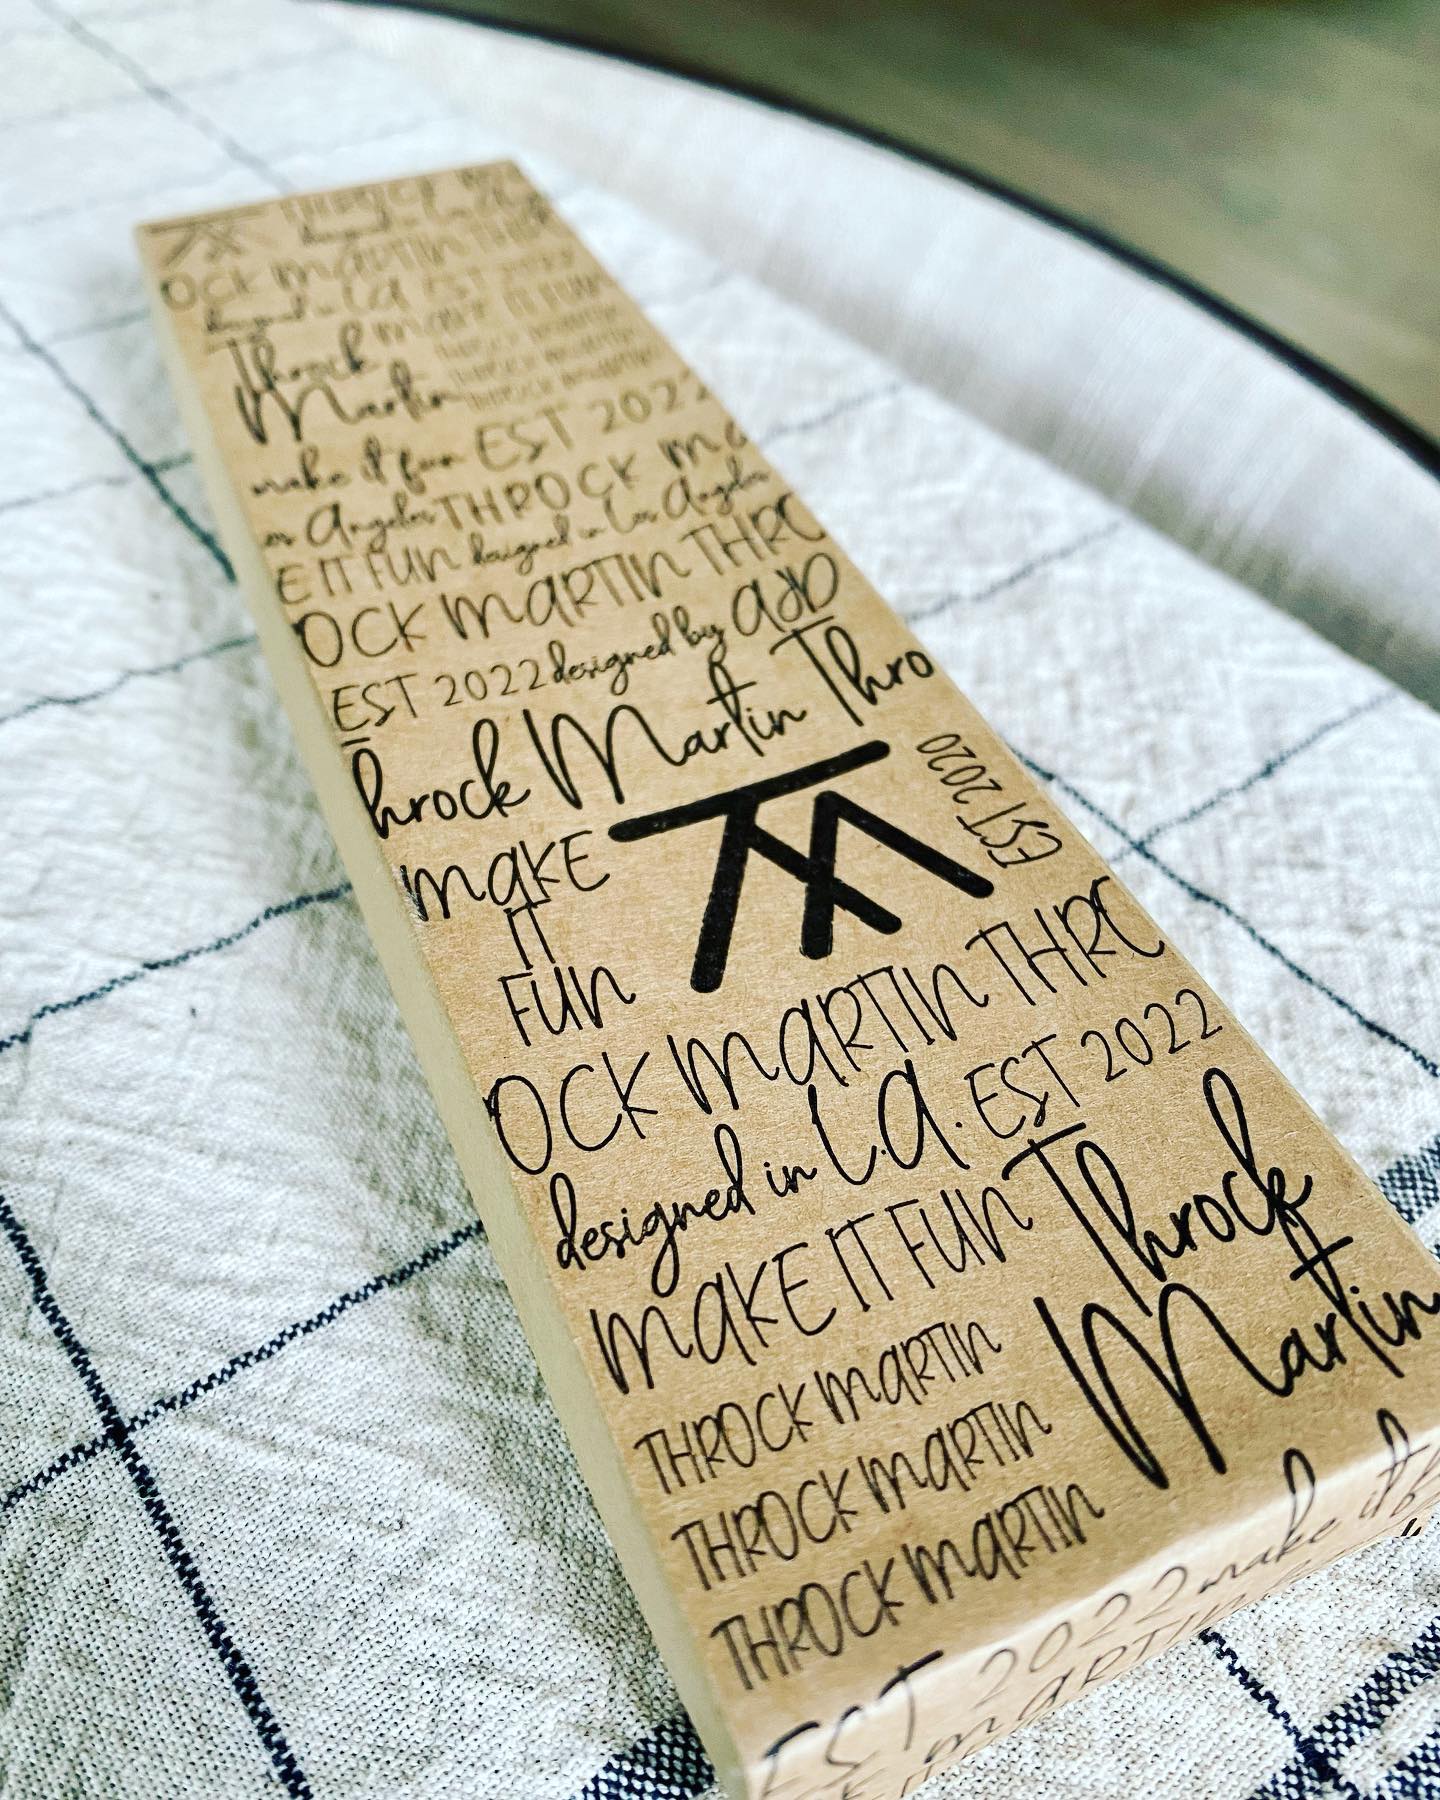 THROCK
designed in
OCK MARTIN THR
designed in LA EST 2022
Throck MAKE IT FUN
Martin THROCK MARTIN
THROCK MARTIN
THROCK MARTIN
make it fun EST 2022
os Angeles THROCK MA
E IT FUN designed in Los Angeles
OCK MARTIN THRO
EST 2022 designed by AJD
Throck Martin Thro
MAKE
IT
FUN
TM
EST 2020
OCK MARTIN THRO
designed in L.A. EST 2022
MAKE IT FUN Throck
Martin
THROCK MARTIN
THROCK MARTIN
THROCK MARTIN
EST 2022 make it
MARTIN